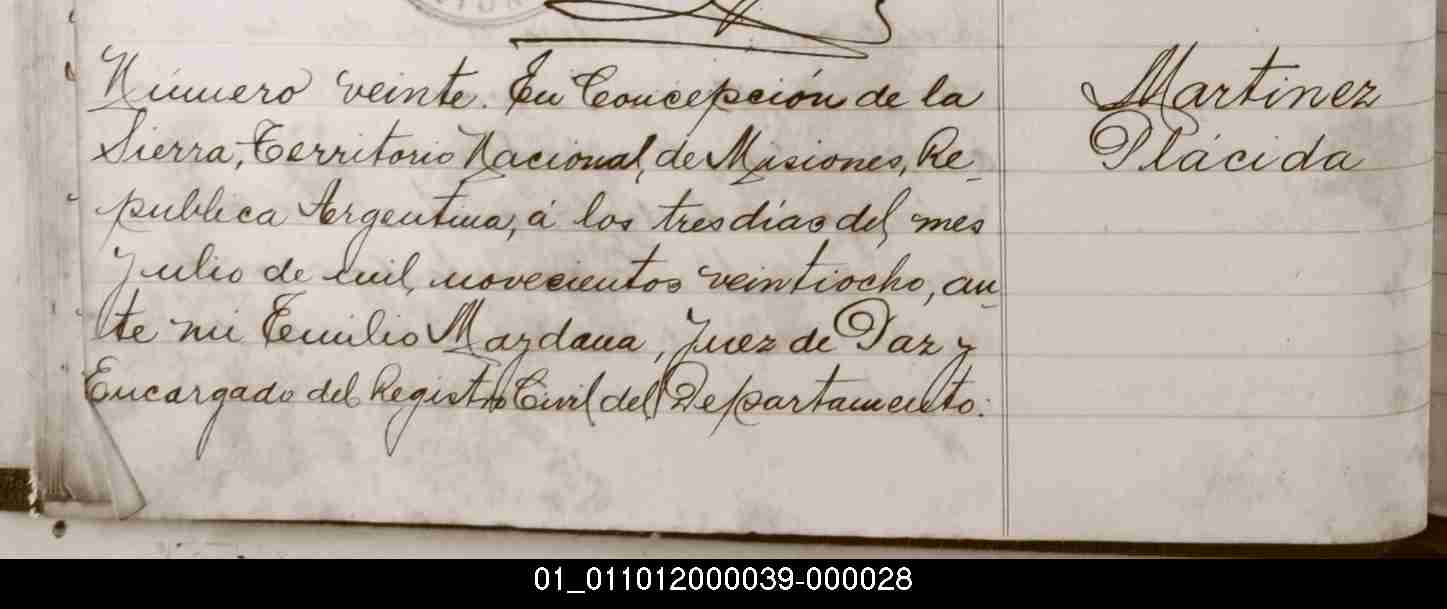 Número veinte. En Concepción de la
Sierra, Territorio Nacional, de Misiones, Re-
publica Argentina, á los tres días del mes
Julio de mil novecientos veintiocho, an-
te mi Emilio Mazdana, Juez de Paz y
Encargado del Registro Civil del Departamento.
Martinez
Plácida
01_011012000039-000028